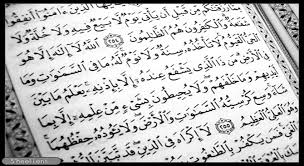 مِّن قَبْلِ أَن يَأْتِيَ يَوْمٌ لَّا بَيْعٌ فِيهِ وَلَا خُلَّةٌ وَلَا
شَفَٰعَةٌ وَٱلْكَٰفِرُونَ هُمُ ٱلظَّٰلِمُونَ ٢٥٤ ٱللَّهُ لَآ إِلَٰهَ إِلَّا هُوَ
ٱلْحَىُّ ٱلْقَيُّومُ لَا تَأْخُذُهُۥ سِنَةٌ وَلَا نَوْمٌ لَّهُۥ مَا فِى ٱلسَّمَٰوَٰتِ وَمَا
فِى ٱلْأَرْضِ مَن ذَا ٱلَّذِى يَشْفَعُ عِندَهُۥٓ إِلَّا بِإِذْنِهِۦ يَعْلَمُ مَا بَيْنَ
أَيْدِيهِمْ وَمَا خَلْفَهُمْ وَلَا يُحِيطُونَ بِشَىْءٍ مِّنْ عِلْمِهِۦٓ إِلَّا بِمَا
شَآءَ وَسِعَ كُرْسِيُّهُ ٱلسَّمَٰوَٰتِ وَٱلْأَرْضَ وَلَا يَـُٔودُهُۥ حِفْظُهُمَا
وَهُوَ ٱلْعَلِىُّ ٱلْعَظِيمُ ٢٥٥ لَآ إِكْرَاهَ فِى ٱلدِّينِ قَد تَّبَيَّنَ ٱلرُّشْدُ
فَمَن يَكْفُرْ
S'heel Lens